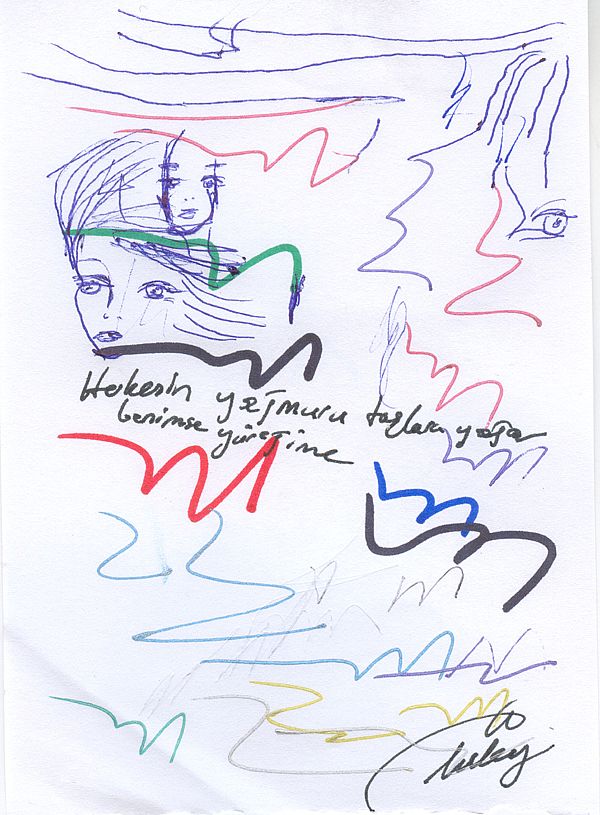 Herkesin yağmuru taşlara yağar
benimse yüreğime